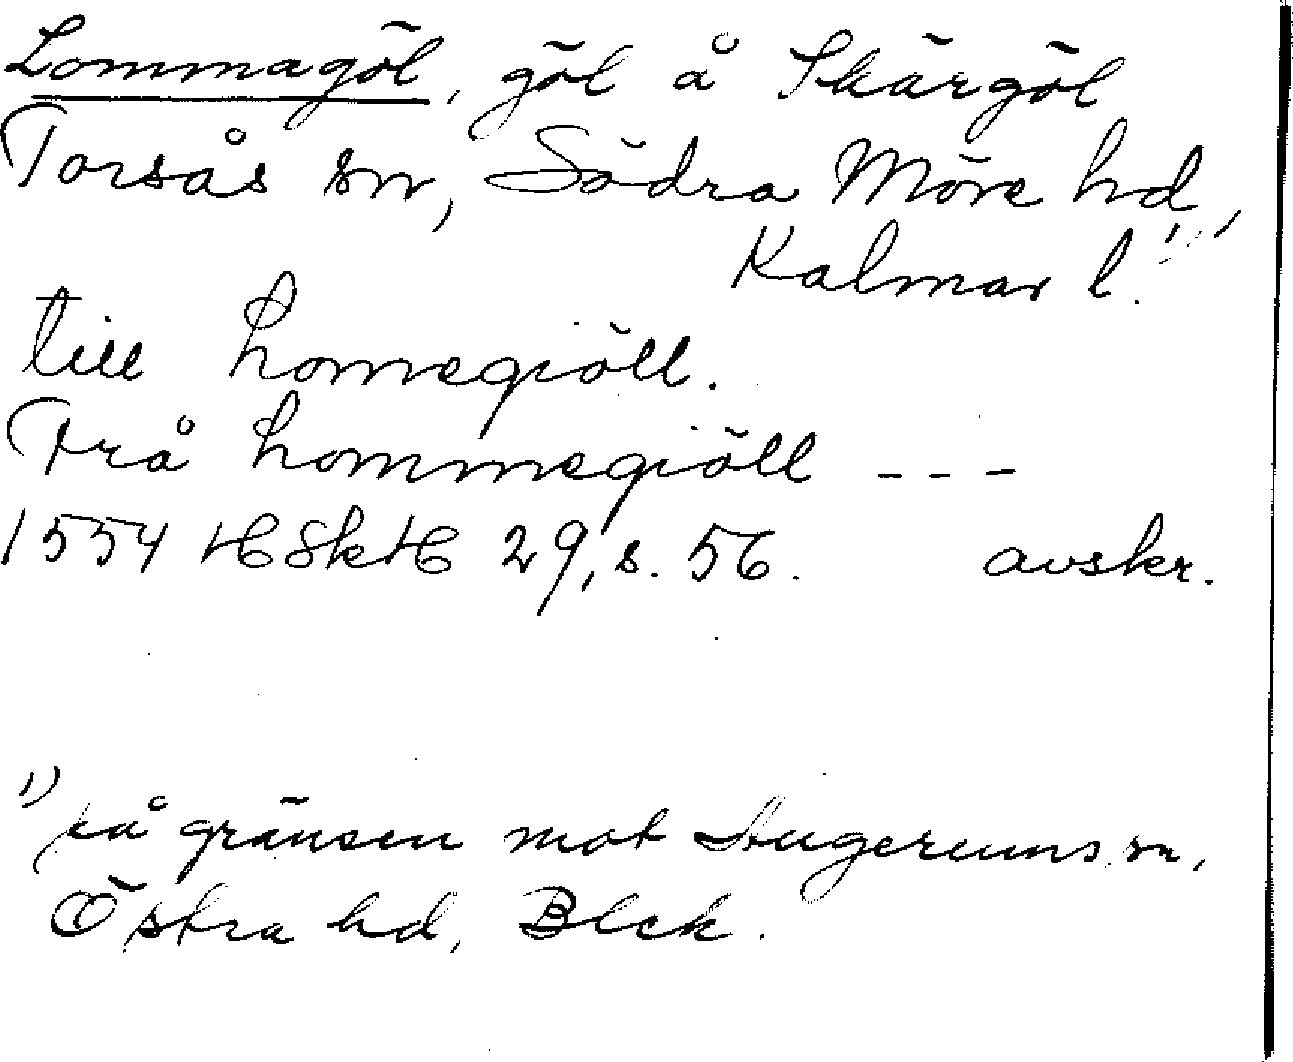 Lommagöl, göl å Skärgöl
Torsås sn, Södra Möre hd,
Kalmar l. 1)
till Lomegiöll.
Frå Lommegiöll ---
1554 HSkH 29, s. 56. avskr.
1) på gränsen mot Augerums sn,
Östra hd, Blek.